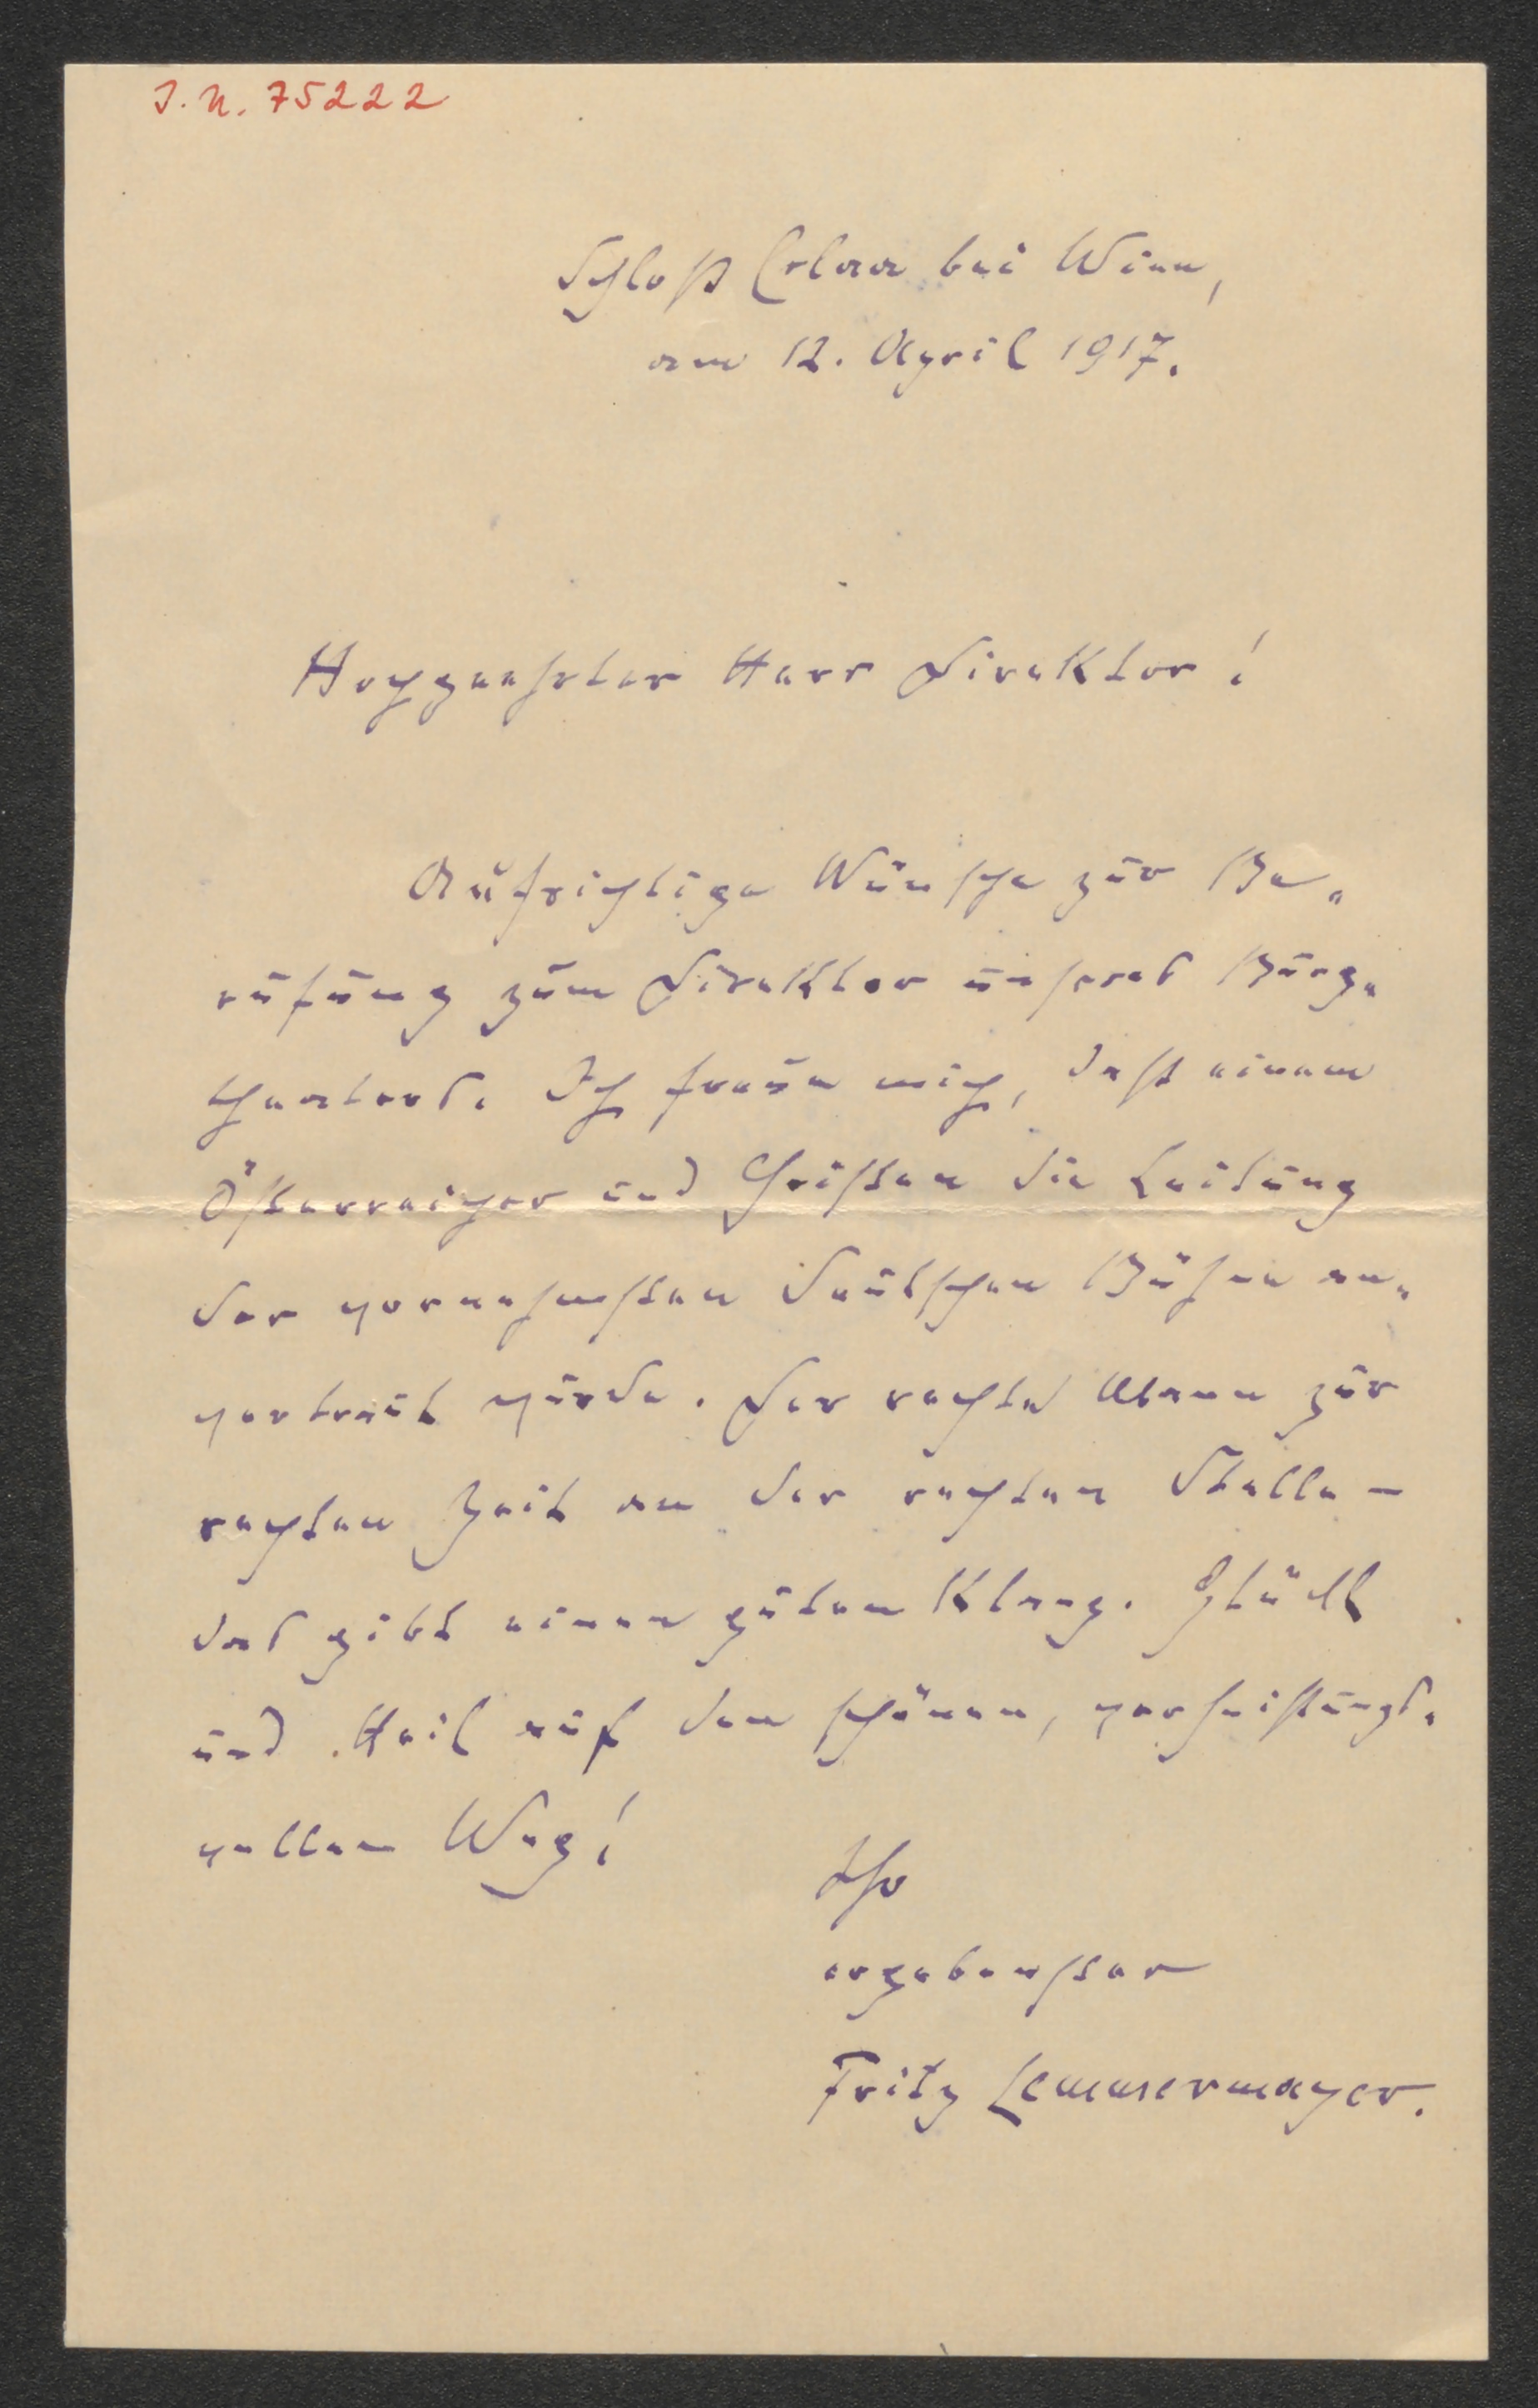 J. N. 75222
Schloß Erlaa bei Wien,
am 12. April 1917.
Hochgeehrter Herr Direktor!
Aufrichtige Wünsche zur Be-
rufung zum Direktor unseres Burg-
theaters. Ich freue mich, daß einem
Österreicher und Christen die Leitung
der vornehmsten deutschen Bühne an-
vertraut wurde. Der rechte Mann zur
rechten Zeit an der rechten Stelle –
das gibt einen guten Klang. Glück
und Heil auf dem schönen, verheißungs-
vollen Weg!
Ihr
ergebenster
Fritz Lemmermayer.